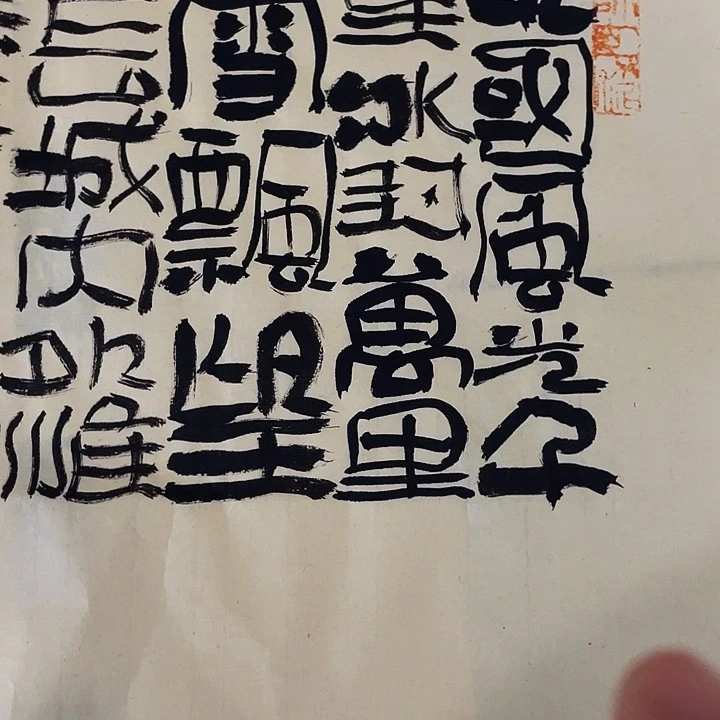 國風光千
里冰封萬里
雪飄望
長城內外惟